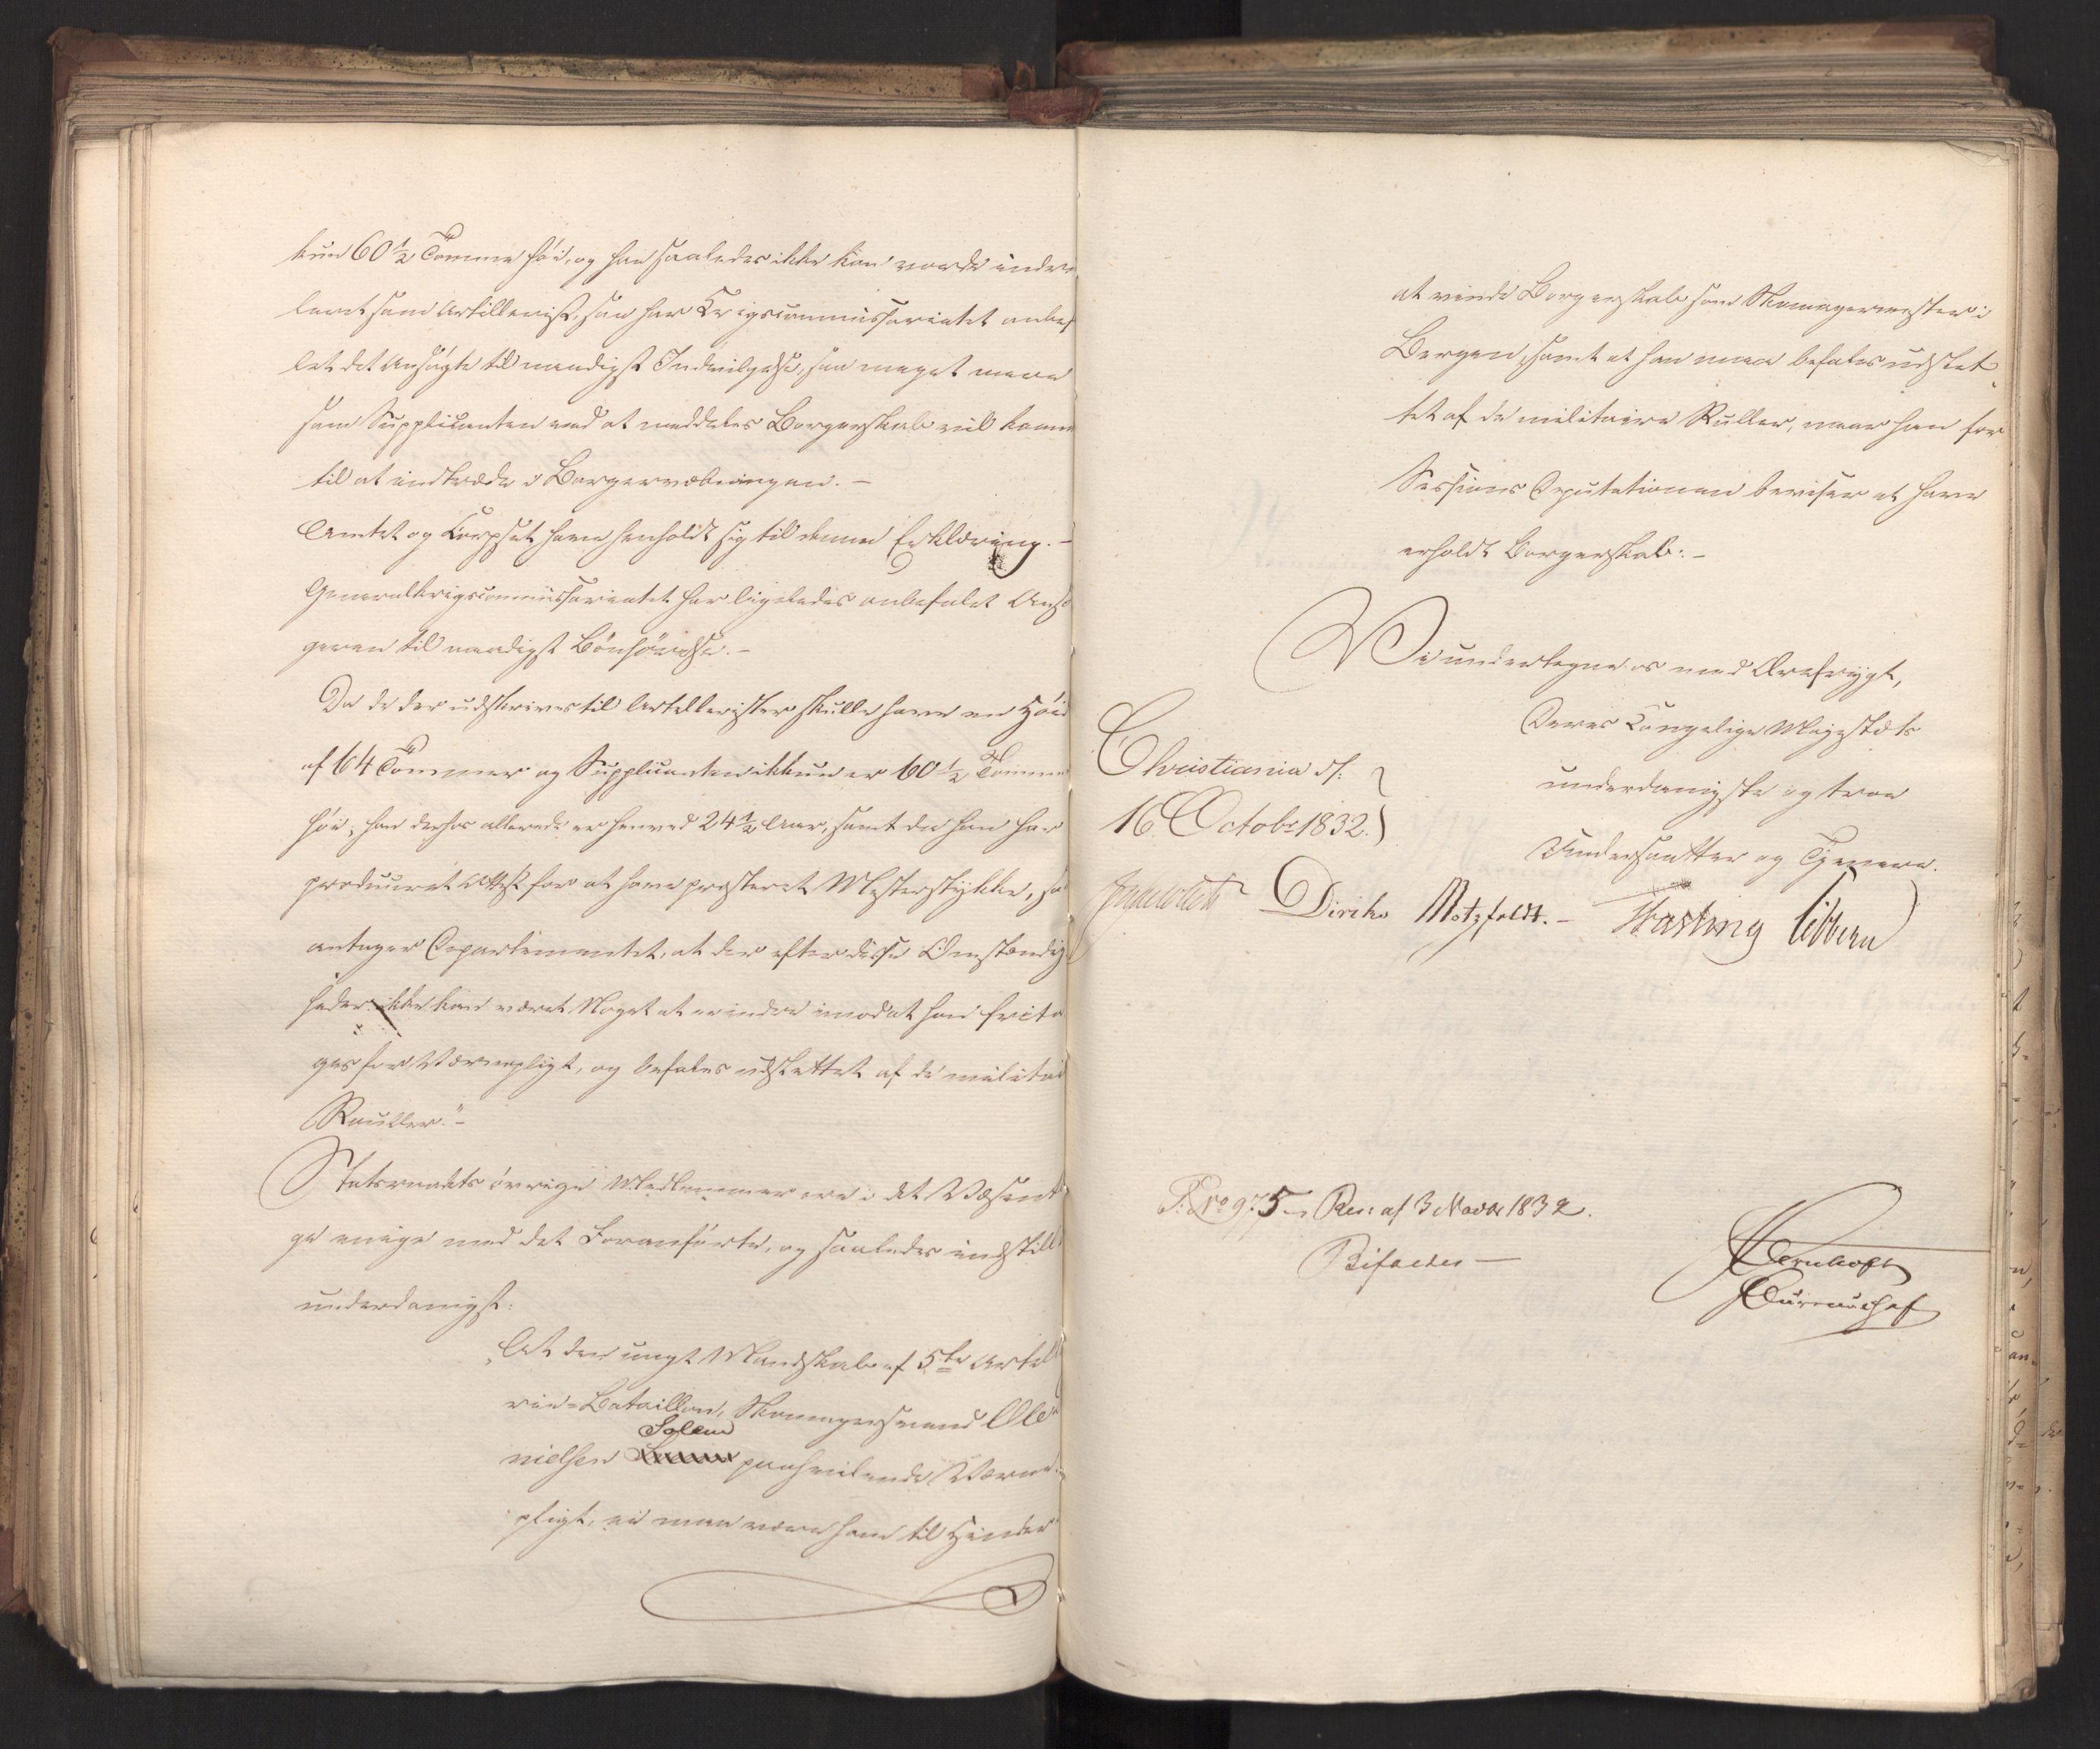 kun 60 1/2 Tomme høi, og han saaledes ikke kan vorde inderu
leret som Artillerist, saa har Krigscommissariatet anbef
let det Ansøgte til naadigst Indvilgelse, saa meget mere
som Supplicanten ved at meddeles Borgerskab vil komme
til at indtræde i Borgervæbningen. —
Amtet og Corpset have henholdt sig til denne Erklæring. —
Generalkrigscommissariatet har ligeledes anbefalet Ansø
geren til naadigst Bønhørelse. —
Da de der udskrives til Artillerister skulle have en Høide
af 64 Tommer og Supplicanten ikkun er 60 1/2 Tomme
høi, han derhos allerede er henved 24 1/2 Aar, samt da han har
produceret Attest for at have præsteret Mesterstykke, saa
antager Departementet, at der efter disse Omstændig
heder ikke kan været Noget at erindre imod at han frita
ges for Værnepligt, og befales udslettet af de militai
Ruller." —
Statsraadets øvrige Medlemmer ere i det Væsentli
ge enige med det Foranførte, og saaledes indstilles
underdanigst:
"At den ungt Mandskab af 5te Artill
rie-Bataillon, Skomagersvend Ole
Solem
Nielsen paahvilende Værne-
pligt, ei maa være ham til Hinder
at vinde Borgerskab som Skomagermester i
Bergen, samt at han maa befales udslet
tet af de militaire Ruller, naar han for
Sessions Deputationen beviser at have
erholdt Borgerskab. —
Vi undertegne os med Ærefrygt,
Deres Kongelige Majestæts
underdanigste og troe
Undersaatter og Tjenere.
Christiania d:
16 Octobr 1832.
Diriks Motzfeldt. — Fasting Sibbern
P: No 975 — Res: af 3 Novbr 1832.
Bifaldes —
Due